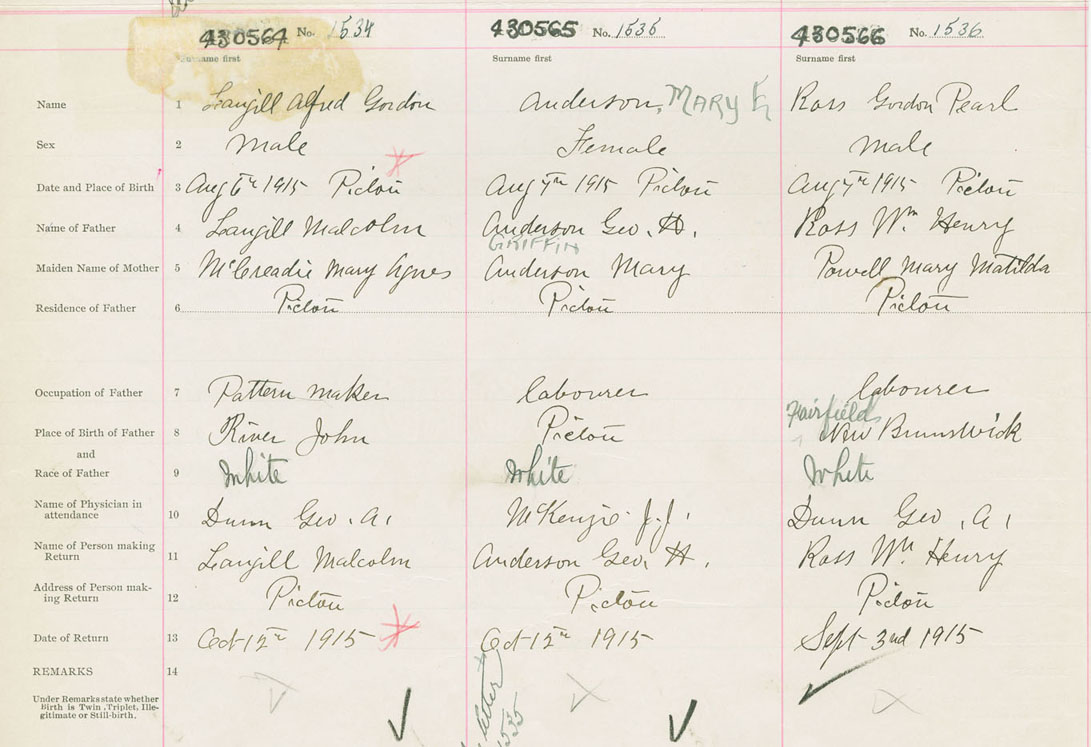 430564 No. 1534 430565 No. 1535 430566 No. 1536
Surname first Surname first Surname first
Name 1 Langill Alfred Gordon Anderson, MARY E Ross Gordon Pearl
Sex 2 Male Female Male
Date and Place of Birth 3 Aug 6th 1915 Pictou Aug 7th 1915 Pictou Aug 7th 1915 Pictou
Name of Father 4 Langill Malcolm Anderson Geo. H. Ross Wm Henry
GRIFFIN
Maiden Name of Mother 5 McCreadie Mary Agnes Anderson Mary Powell Mary Matilda
Residence of Father 6 Pictou Pictou Pictou
Occupation of Father 7 Pattern maker labourer labourer
Fairfield
Place of Birth of Father 8 River John Pictou New Brunswick
and
Race of Father 9 White White White
Name of Physician in
attendance 10 Dunn Geo. A. McKenzie J.J. Dunn Geo. A.
Name of Person making
Return 11 Langill Malcolm Anderson Geo. H. Ross Wm Henry
Address of Person mak-
ing Return 12 Pictou Pictou Pictou
Date of Return 13 Oct 12th 1915 Oct 12th 1915 Sept 3rd 1915
REMARKS 14
Under Remarks state whether
Birth is Twin, Triplet, Ille-
gitimate or Still-birth.
letter
1535